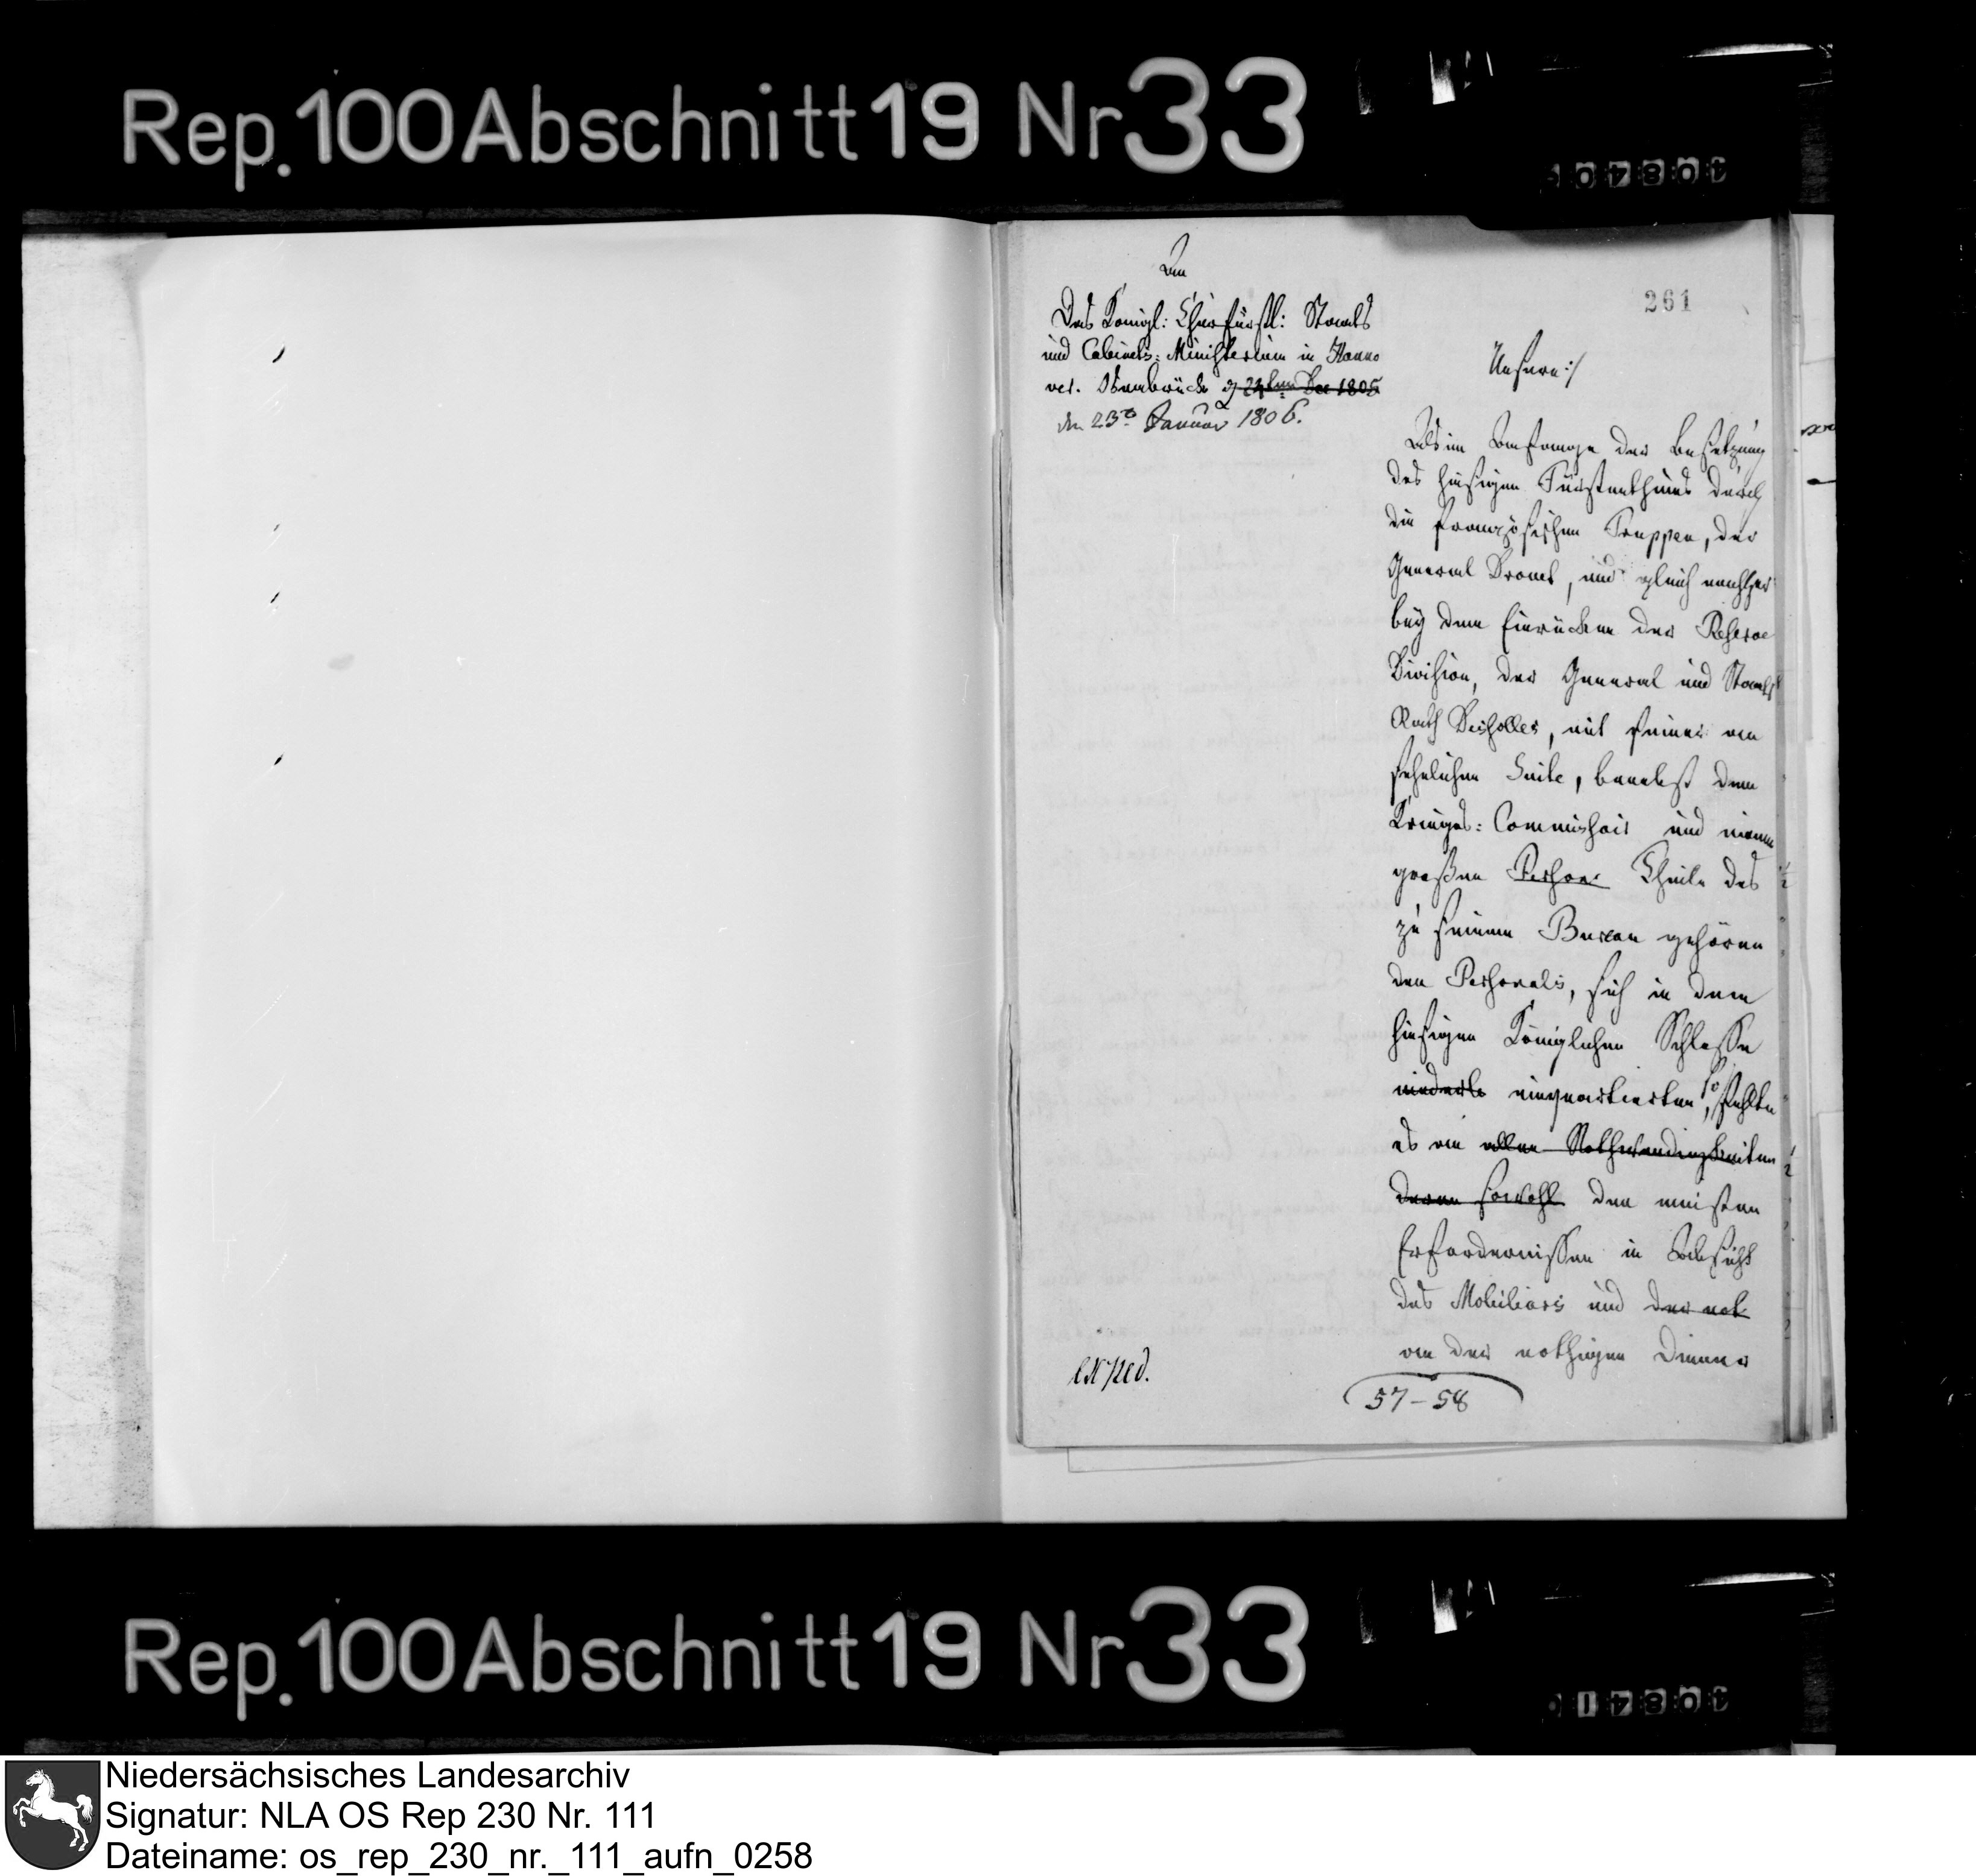 Rep. 100 Abschnitt 19 Nr 33
261
An
Das Königl: Churfürstl: Staats
und Cabinets-Ministerium in Hanno
ver. Osnabrück d 24ten Dec 1805
den 23t Januar 1806.
Unsere:/
Als im Anfange der Besetzung
des hiesigen Fürstenthums durch
die französischen Truppen, der
General Drouet, und gleich nachher
bey dem Einrücken der Reserve
Division, der General und Staats
Rath Dessolles, mit seiner an
sehnlichen Suite, benebst dem
Krieges-Commissair und einem
großen Person Theile des
zu seinem Bureau gehören
den Personals, sich in dem
hiesigen Königlichen Schlosse
niederle einquartierten, so fehlte
es an allen Nothwendigkeiten
deren sowohl den meisten
Erfordernissen in Absicht
des Mobiliars und der not
an der nothigen Diener
exped.
57-58
Rep. 100 Abschnitt 19 Nr 33
Niedersächsisches Landesarchiv
Signatur: NLA OS Rep 230 Nr. 111
Dateiname: os_rep_230_nr._111_aufn_0258